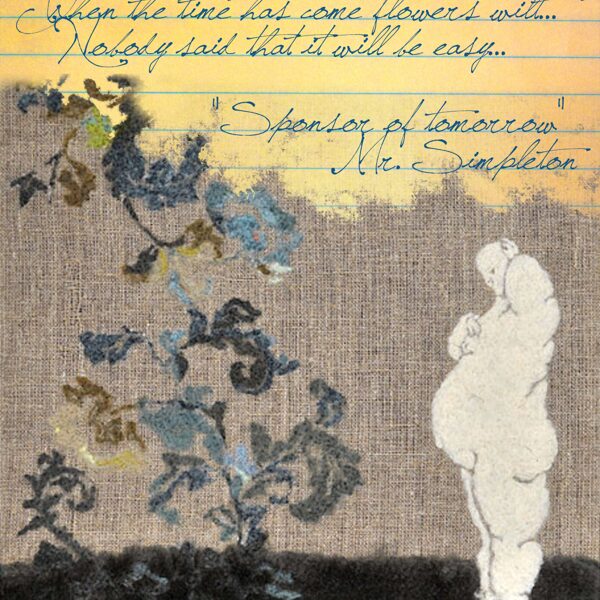 When the time has come flowers wilt...
Nobody said that it will be easy...
"Sponsor of tomorrow"
Mr. Simpleton